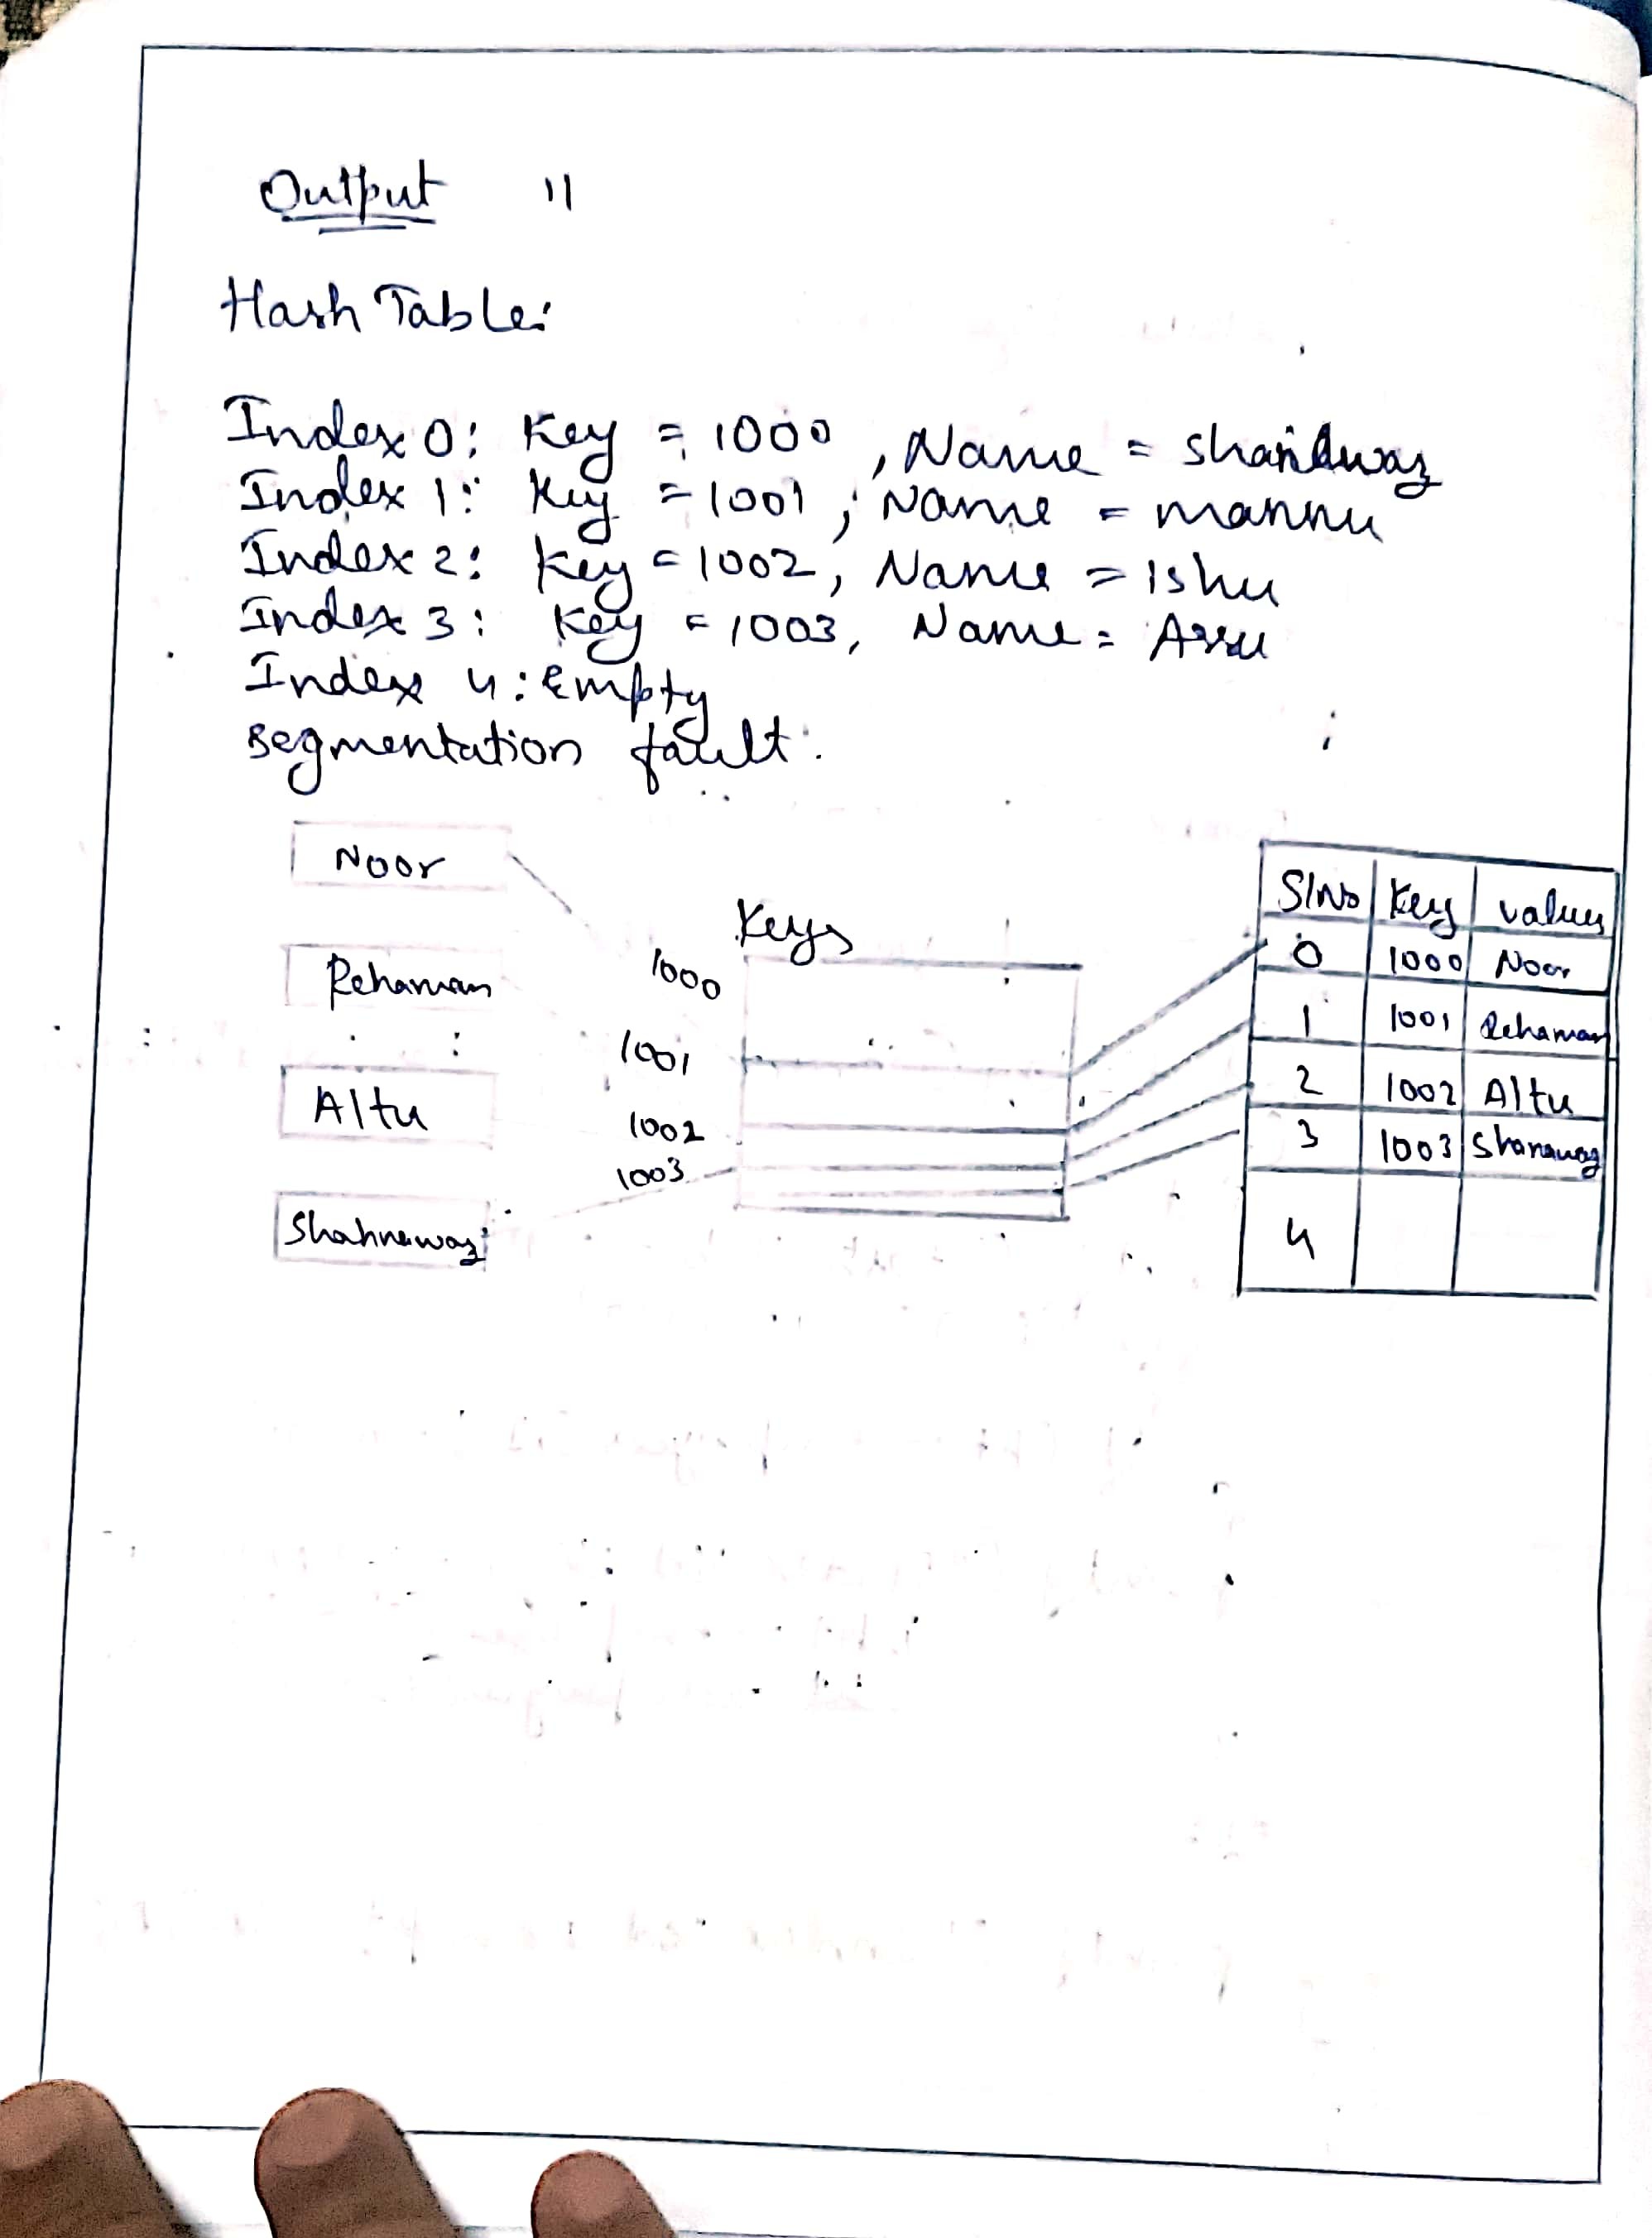 Output 11
Hash Table:
Index 0: Key = 1000, Name =
Index 1: Key = 1001, Name = mannu
Index 2: Key = 1002, Name = Ishu
Index 3: Key = 1003, Name =
Index 4: Empty
Segmentation fault.
Noor
Rehaman
Altu
Shahnawaz
Keys
1000
1001
1002
1003
Sl No Key values
0 1000 Noor
1 1001 Rehaman
2 1002 Altu
3 1003 Shanawaz
4